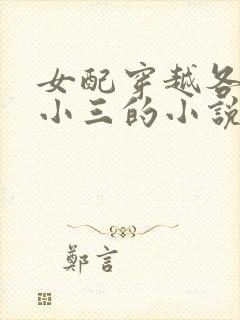 女配穿越各
小三的小說
鄭言